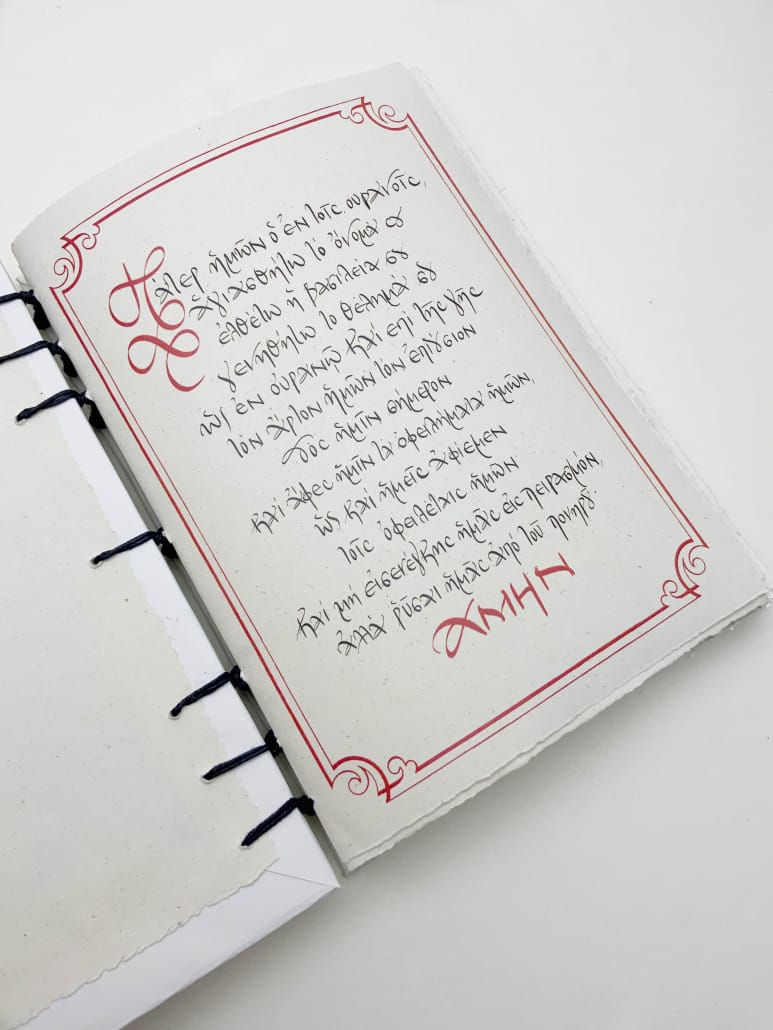 Πάτερ ἡμῶν ὁ ἐν τοῖς οὐρανοῖς,
ἁγιασθήτω τό ὄνομά σου
ἐλθέτω ἡ βασιλεία σου
γενηθήτω το θέλημά σου
ὡς ἐν οὐρανῷ καί ἐπί τῆς γῆς
τόν ἄρτον ἡμῶν τόν ἐπιούσιον
δός ἡμῖν σήμερον
καί ἄφες ἡμῖν τά ὀφειλήματα ἡμῶν,
ὡς καί ἡμεῖς ἀφίεμεν
τοῖς ὀφειλέταις ἡμῶν
καί μή εἰσενέγκῃς ἡμᾶς εἰς πειρασμόν,
ἀλλά ῥῦσαι ἡμᾶς ἀπό τοῦ πονηροῦ·
ΑΜΗΝ